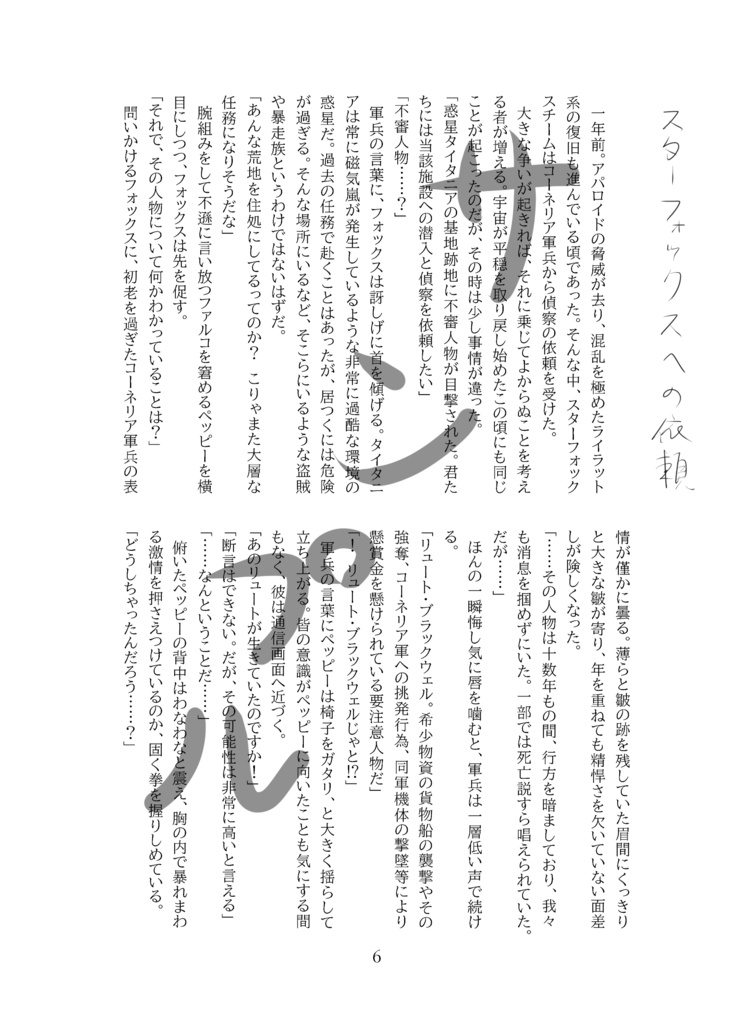 スターフォックスへの依頼
一年前。アパロイドの脅威が去り、混乱を極めたライラット
系の復旧も進んでいる頃であった。そんな中、スターフォック
スチームはコーネリア軍兵から偵察の依頼を受けた。
大きな争いが起きれば、それに乗じてよからぬことを考え
る者が増える。宇宙が平穏を取り戻し始めたこの頃にも同じ
ことが起こったのだが、その時は少し事情が違った。
「惑星タイタニアの基地跡地に不審人物が目撃された。君た
ちには当該施設への潜入と偵察を依頼したい」
「不審人物……？」
軍兵の言葉に、フォックスは訝しげに首を傾げる。タイタニ
アは常に磁気嵐が発生しているような非常に過酷な環境の
惑星だ。過去の任務で赴くことはあったが、居つくには危険
が過ぎる。そんな場所にいるなど、そこらにいるような盗賊
や暴走族というわけではないはずだ。
「あんな荒地を住処にしてるってのか？　こりゃまた大層な
任務になりそうだな」
腕組みをして不遜に言い放つファルコを窘めるペッピーを横
目にしつつ、フォックスは先を促す。
「それで、その人物について何かわかっていることは？」
問いかけるフォックスに、初老を過ぎたコーネリア軍兵の表
情が僅かに曇る。薄らと皺の跡を残していた眉間にくっきり
と大きな皺が寄り、年を重ねても精悍さを欠いていない面差
しが険しくなった。
「……その人物は十数年もの間、行方を暗ましており、我々
も消息を掴めずにいた。一部では死亡説すら唱えられていた。
だが……」
ほんの一瞬悔し気に唇を噛むと、軍兵は一層低い声で続け
る。
「リュート・ブラックウェル。希少物資の貨物船の襲撃やその
強奪、コーネリア軍への挑発行為、同軍機体の撃墜等により
懸賞金を懸けられている要注意人物だ」
「！　リュート・ブラックウェルじゃと!?」
軍兵の言葉にペッピーは椅子をガタリ、と大きく揺らして
立ち上がる。皆の意識がペッピーに向いたことも気にする間
もなく、彼は通信画面へ近づく。
「あのリュートが生きていたのですか！」
「断言はできない。だが、その可能性は非常に高いと言える」
「……なんということだ……」
俯いたペッピーの背中はわなわなと震え、胸の内で暴れまわ
る激情を押さえつけているのか、固く拳を握りしめている。
「どうしちゃったんだろう……？」
サンプル
6